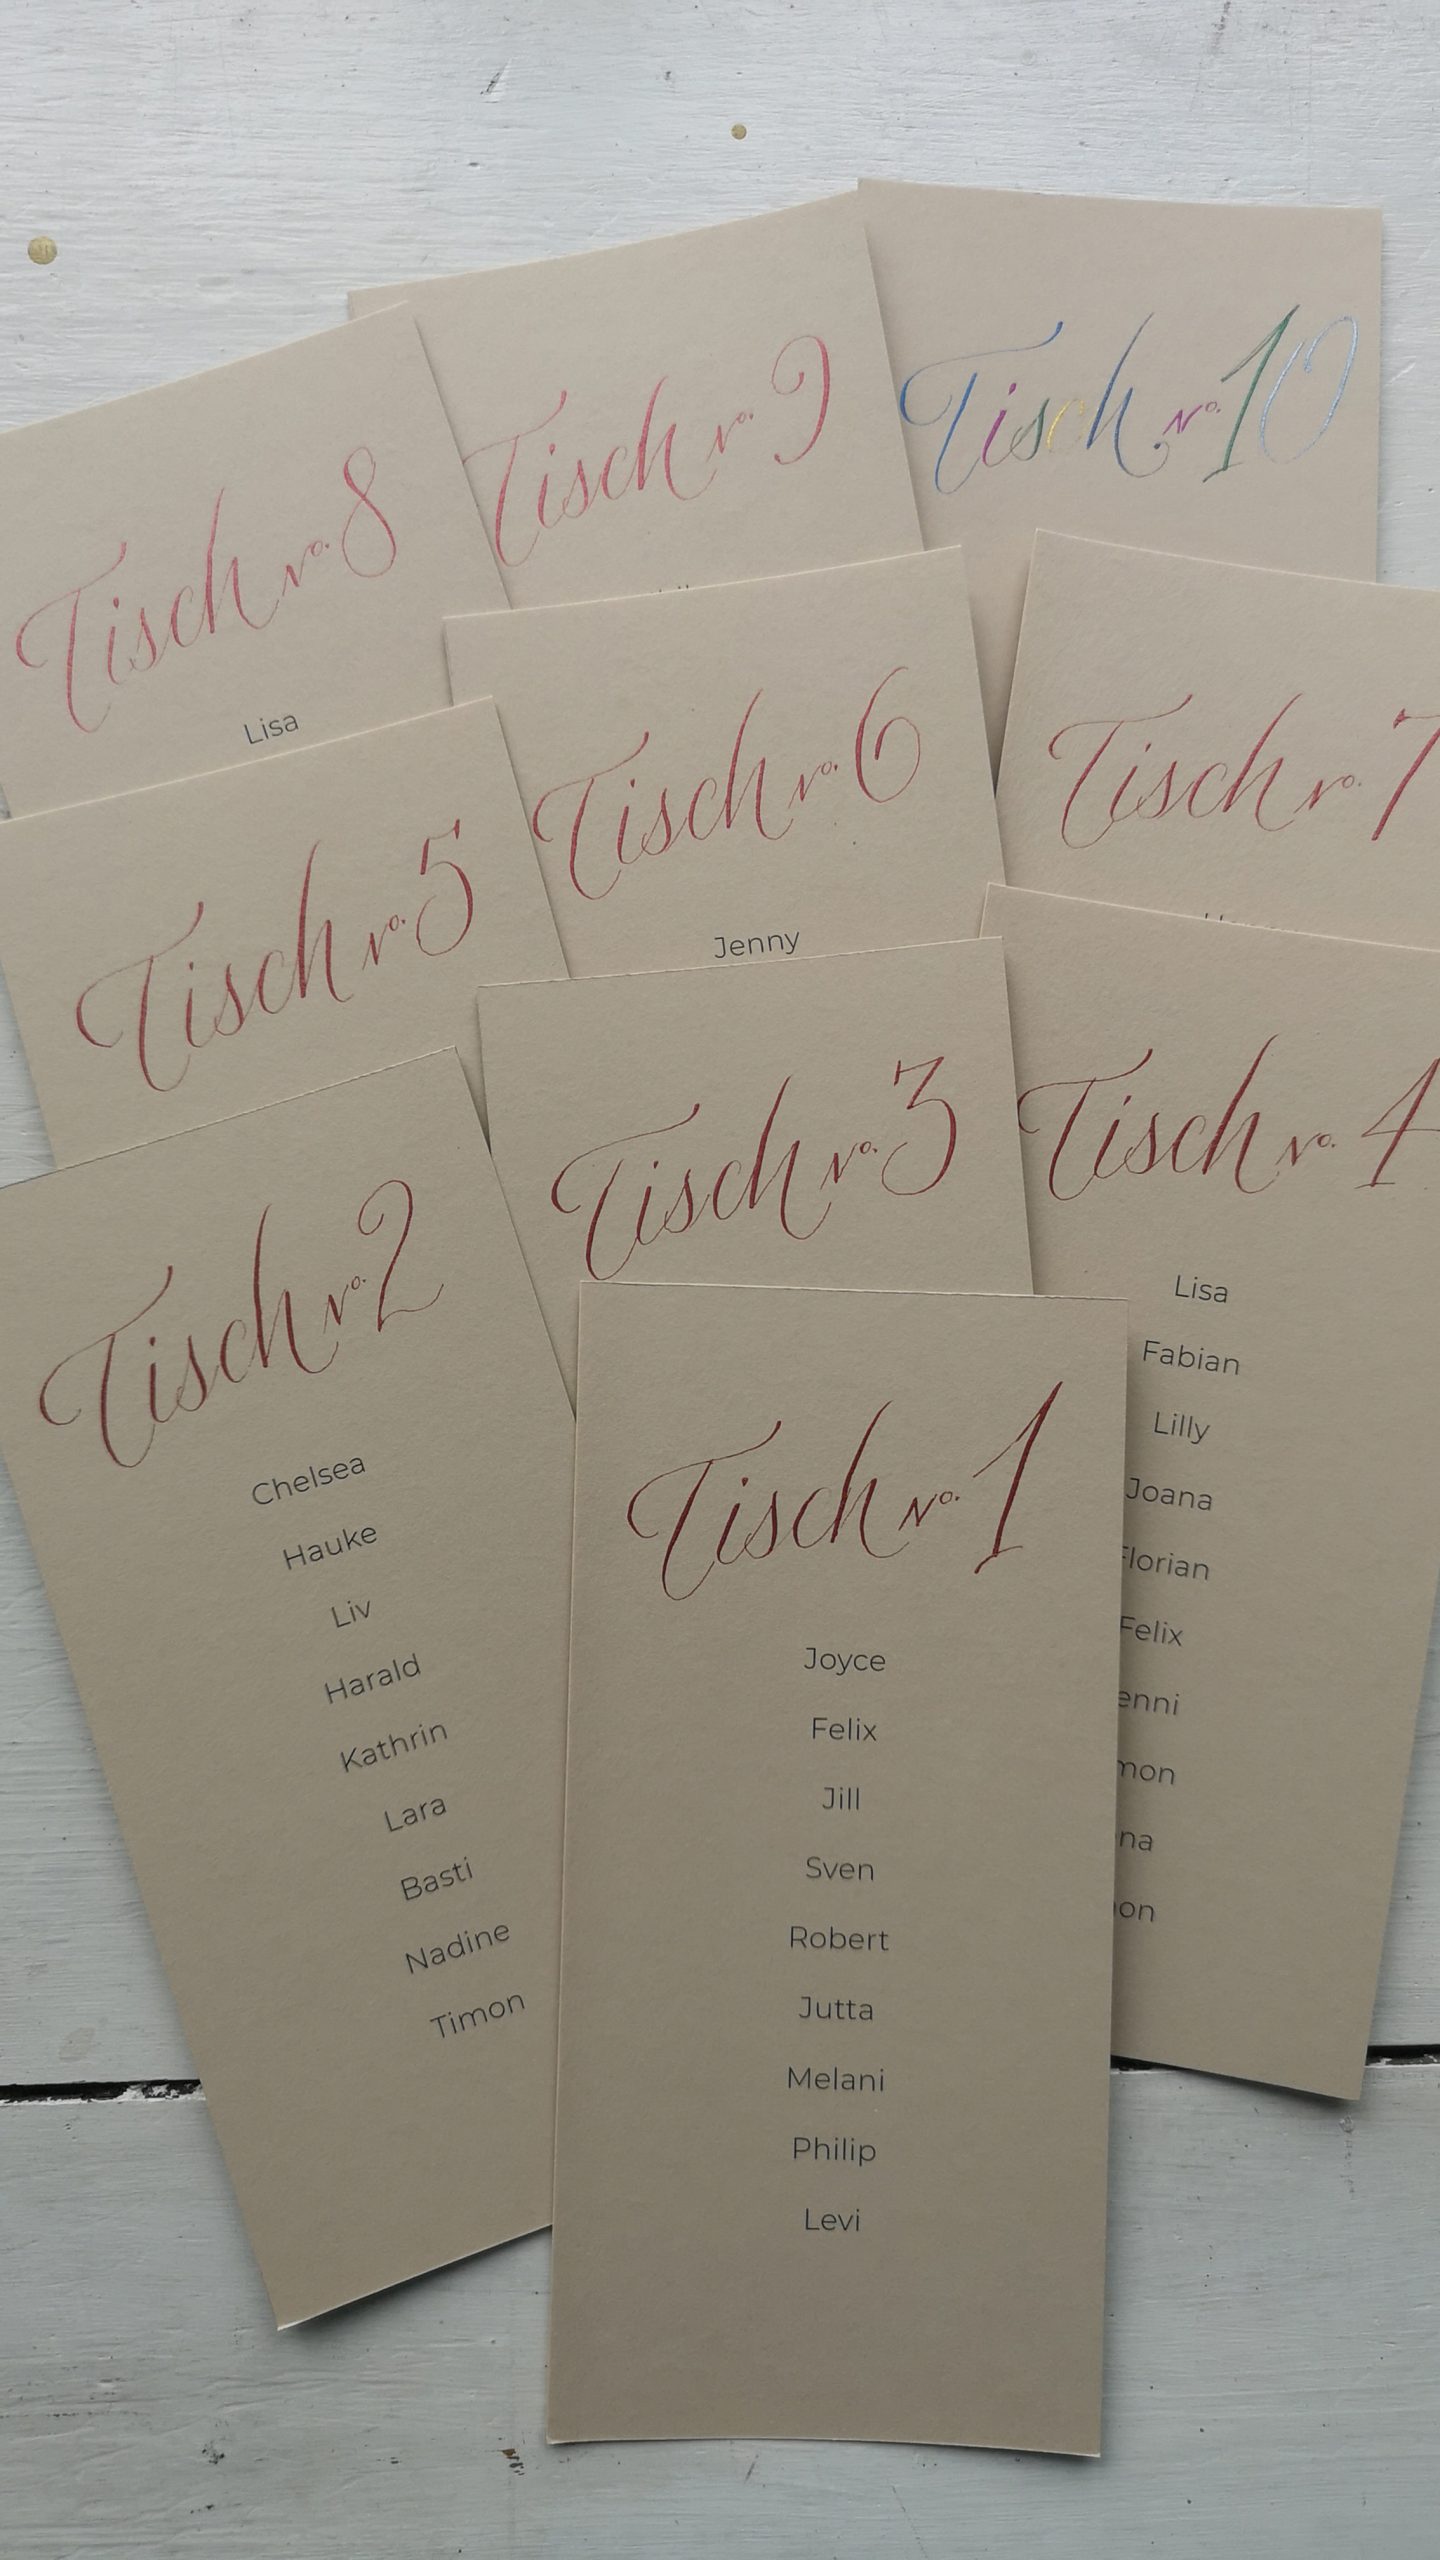 Tisch No. 10
Tisch No. 9
Tisch No. 8
Lisa
Tisch No. 7
Tisch No. 6
Jenny
Tisch No. 5
Tisch No. 4
Lisa
Fabian
Lilly
Joana
Florian
Felix
Tisch No. 3
Tisch No. 2
Chelsea
Hauke
Liv
Harald
Kathrin
Lara
Basti
Nadine
Timon
Tisch No. 1
Joyce
Felix
Jill
Sven
Robert
Jutta
Melani
Philip
Levi